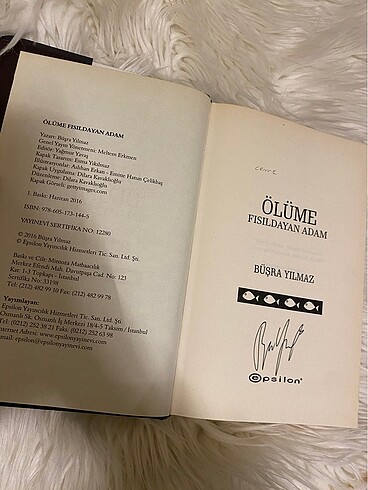 ÖLÜME FISILDAYAN ADAM
Yazarı: Büşra Yılmaz
Genel Yayın Yönetmeni: Meltem Erkmen
Editör: Yağmur Yavaş
Kapak Tasarım: Esma Yıkılmaz
İllüstrasyonlar: Aslıhan Erkan - Emine Hatun Çelikbaş
Kapak Uygulama: Dilara Kavaklıoğlu
Düzenleme: Dilara Kavaklıoğlu
Kapak Görseli: gettyimages.com
1. Baskı: Haziran 2016
ISBN: 978-605-173-144-5
YAYINEVİ SERTİFİKA NO: 12280
© 2016 Büşra Yılmaz
© Epsilon Yayıncılık Hizmetleri Tic. San. Ltd. Şti.
Baskı ve Cilt: Mimoza Matbaacılık
Merkez Efendi Mah. Davutpaşa Cad. No: 123
Kat: 1-3 Topkapı - İstanbul
Sertifika No: 33198
Tel: (212) 482 99 10 Fax: (212) 482 99 78
Yayımlayan:
Epsilon Yayıncılık Hizmetleri Tic. San. Ltd. Şti.
Osmanlı Sk. Osmanlı İş Merkezi 18/4-5 Taksim / İstanbul
Tel: (0212) 252 38 21 Faks: (0212) 252 63 98
Internet Adresi: www.epsilonyayinevi.com
e-mail: epsilon@epsilonyayinevi.com
ÖLÜME
FISILDAYAN ADAM
BÜŞRA YILMAZ
epsilon®